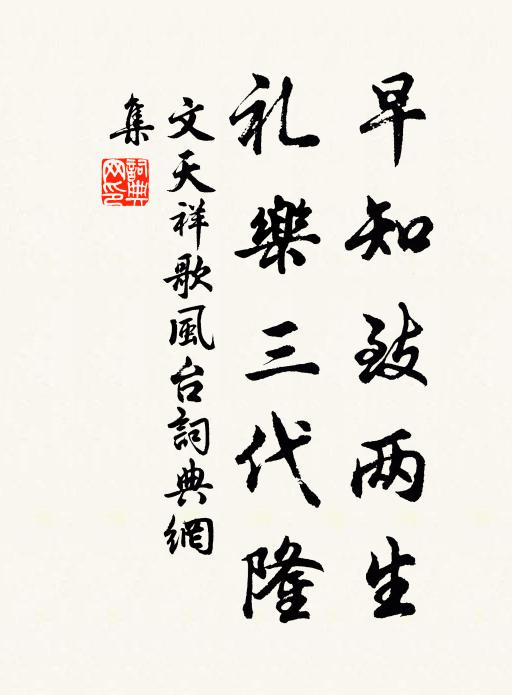 早知致两生
礼樂三代隆
文天祥歌風台詞典網
集
詞典网印